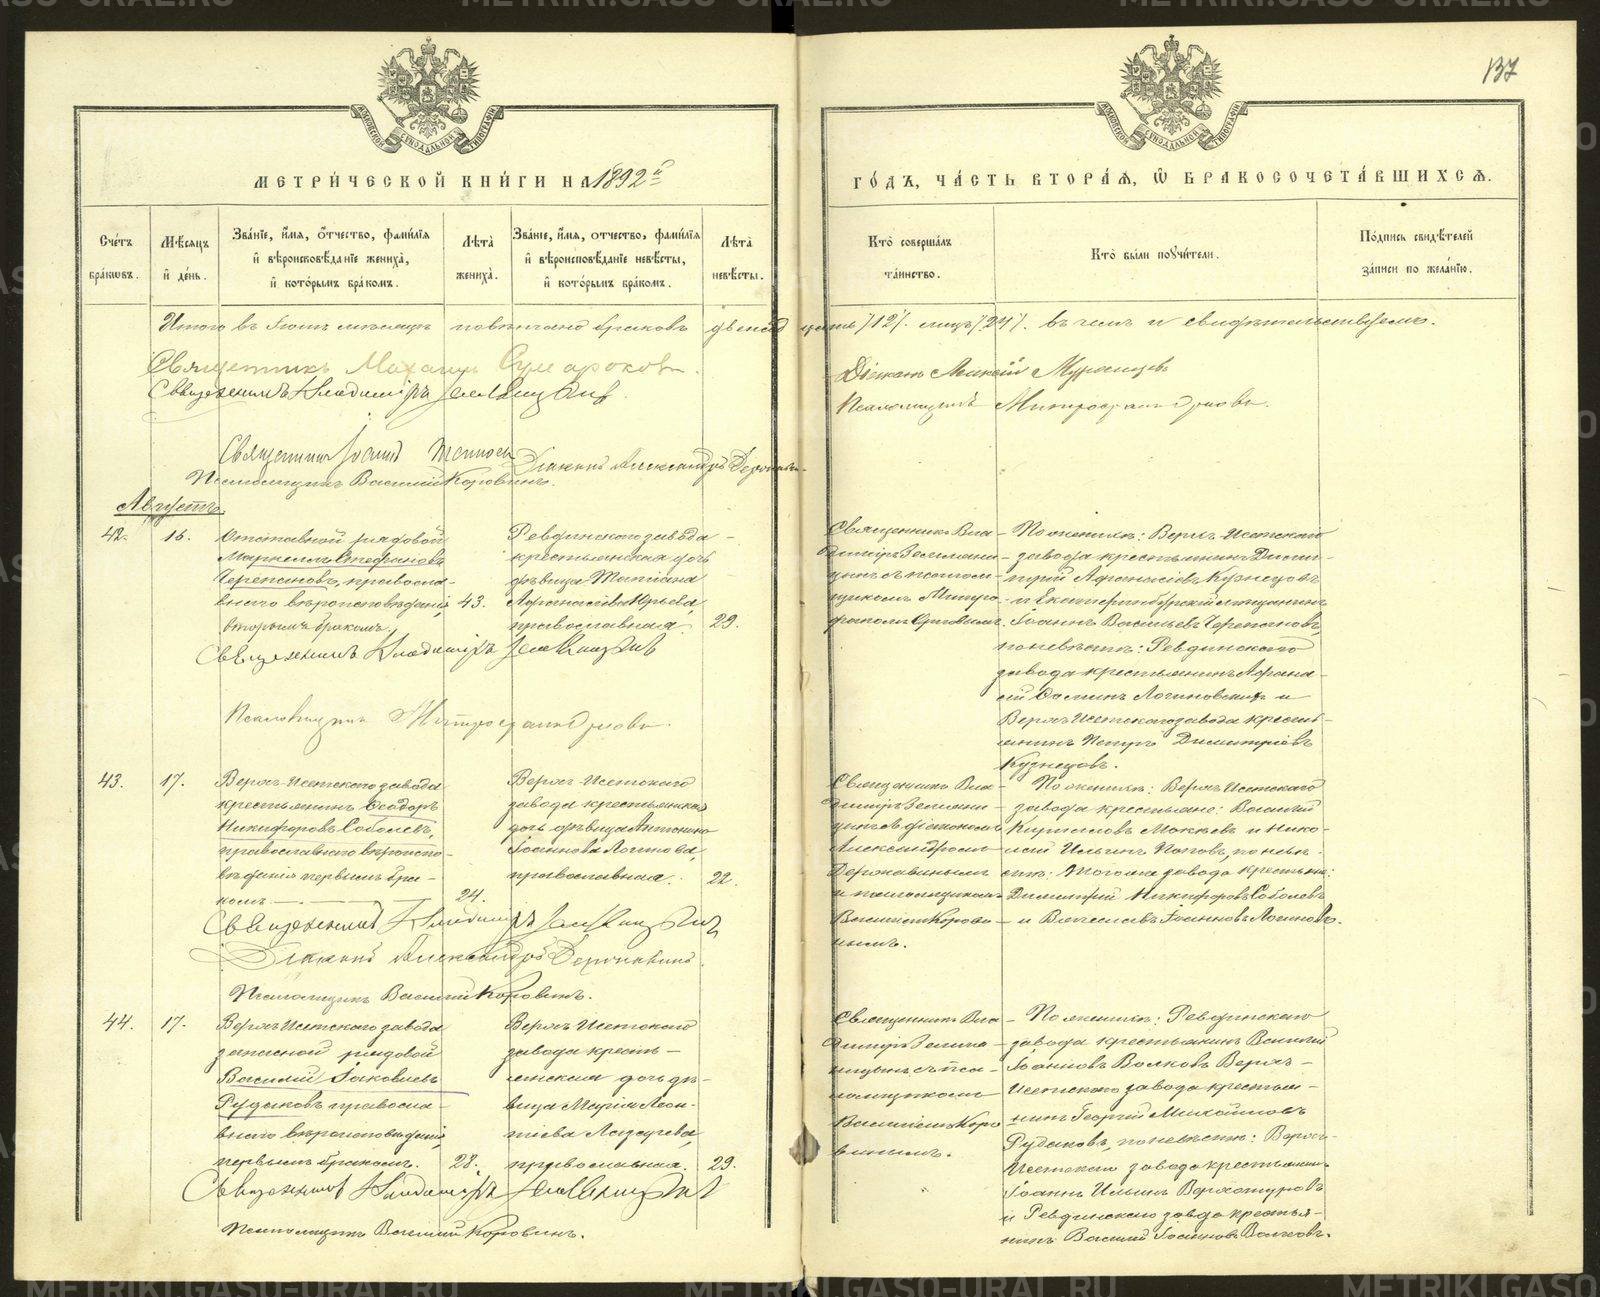 137
МЕТРИ́ЧЕСКОЙ КНИ́ГИ НА 1892й
ГО́ДЪ, ЧА́СТЬ ВТОРА́Ѧ, Ѽ БРАКОСОЧЕТА́ВШИХСѦ.
Сче́тъ бра́кωвъ.
Мѣ́сяцъ и де́нь.
Зва́нїе, и́мѧ, о́тчество, фамѝлїѧ
и вѣроисповѣ́данїе жениха̀,
и кото́рымъ бра́комъ.
Лѣта̀ жениха̀.
Зва́нїе, и́мѧ, о́тчество, фамѝлїѧ
и вѣроисповѣ́данїе невѣ́сты,
и кото́рымъ бра́комъ.
Лѣта̀ невѣ́сты.
Кто̀ соверша́лъ
та́инство.
Кто̀ бы́ли пору́чители.
По́дпись свидѣ́телей
за́писи по жела́нїю.
Итого въ Іюлѣ мѣсяцѣ повѣнчано браковъ двѣнадцать /12/. лицъ /24/. въ чемъ и свидѣтельствуемъ.
Священникъ
Священникъ Владиміръ Земляницынъ
Діаконъ Алексій
Псаломщикъ Митрофанъ
Священникъ Іоаннъ
Діаконъ Александръ Державинъ
Псаломщикъ Василій Коровинъ.
Августъ.
42.
16.
Отставной рядовой
Маркеллъ Стефановъ
Черепановъ, правосла-
внаго вѣроисповѣданія,
вторымъ бракомъ.
43.
Ревдинскаго завода
крестьянская дочь
дѣвица Татіана
Афанасіева Юрьева,
православная.
29.
Священникъ Вла-
диміръ Земляни-
цынъ съ псалом-
щикомъ Митро-
фаномъ
По женихѣ: Верхъ-Исетскаго
завода крестьянинъ Дими-
трій Афанасіевъ Кузнецовъ
и Екатеринбургскій мѣщанинъ
Іоаннъ Васильевъ Черепановъ,
по невѣстѣ: Ревдинскаго
завода крестьянинъ Афана-
сій Логиновскихъ и
Верхъ-Исетскаго завода кресть-
янинъ Петръ Димитріевъ
Кузнецовъ.
Священникъ Владиміръ Земляницынъ
Псаломщикъ Митрофанъ
43.
17.
Верхъ-Исетскаго завода
крестьянинъ Ѳеодоръ
Никифоровъ Соболевъ,
православнаго вѣроиспо-
вѣданія первымъ бра-
комъ.
24.
Верхъ-Исетскаго
завода крестьянская
дочь дѣвица Антонина
Іоаннова Логинова,
православная.
22.
Священникъ Вла-
диміръ Земляни-
цынъ съ діакономъ
Александромъ
Державинымъ
и псаломщикомъ
Василіемъ Корови-
нымъ.
По женихѣ: Верхъ-Исетскаго
завода крестьяне: Василій
Кирилловъ Мокѣевъ и Нико-
лай Ильинъ Поповъ, по невѣ-
стѣ: того же завода крестьяне:
Димитрій Никифоровъ Соболевъ
и Вячеславъ Іоанновъ Логиновъ.
Священникъ Владиміръ Земляницынъ
Діаконъ Александръ Державинъ.
Псаломщикъ Василій Коровинъ.
44.
17.
Верхъ-Исетскаго завода
запасной рядовой
Василій Іаковлевъ
Рудаковъ правосла-
внаго вѣроисповѣданія,
первымъ бракомъ.
28.
Верхъ-Исетскаго
завода кресть-
янская дочь дѣ-
вица Марія Леон-
тіева Лазарева,
православная.
29.
Священникъ Вла-
диміръ Земля-
ницынъ съ пса-
ломщикомъ
Василіемъ Коро-
винымъ.
По женихѣ: Ревдинскаго
завода крестьянинъ Василій
Іоанновъ Волковъ Верхъ-
Исетскаго завода крестья-
нинъ Георгій Михайловъ
Рудаковъ, по невѣстѣ: Верхъ-
Исетскаго завода крестьянинъ
Іоаннъ Ильинъ Верхотуровъ
и Ревдинскаго завода крестья-
нинъ Василій Іоанновъ Волковъ.
Священникъ Владиміръ Земляницынъ
Псаломщикъ Василій Коровинъ.
METRIKI.GASO-URAL.RU